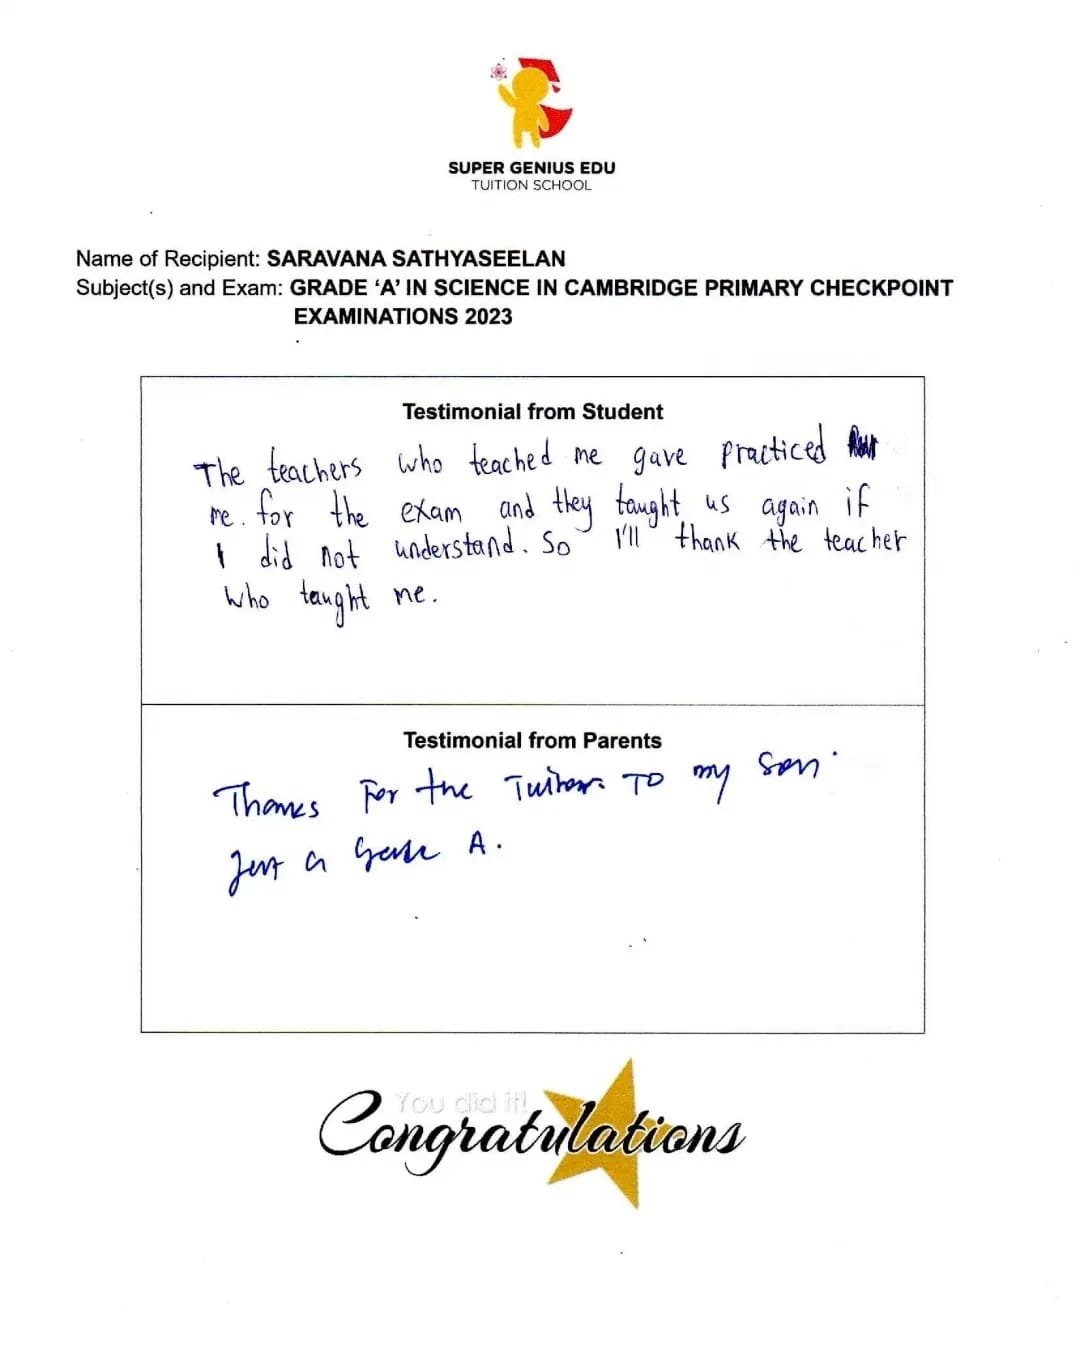 SUPER GENIUS EDU
TUITION SCHOOL
Name of Recipient: SARAVANA SATHYASEELAN
Subject(s) and Exam: GRADE ‘A’ IN SCIENCE IN CAMBRIDGE PRIMARY CHECKPOINT
EXAMINATIONS 2023
Testimonial from Student
The teachers who teached me gave practiced
me. for the exam and they taught us again if
I did not understand. So I'll thank the teacher
who taught me.
Testimonial from Parents
Thanks For the TO my Son.
a A.
You did it!
Congratulations